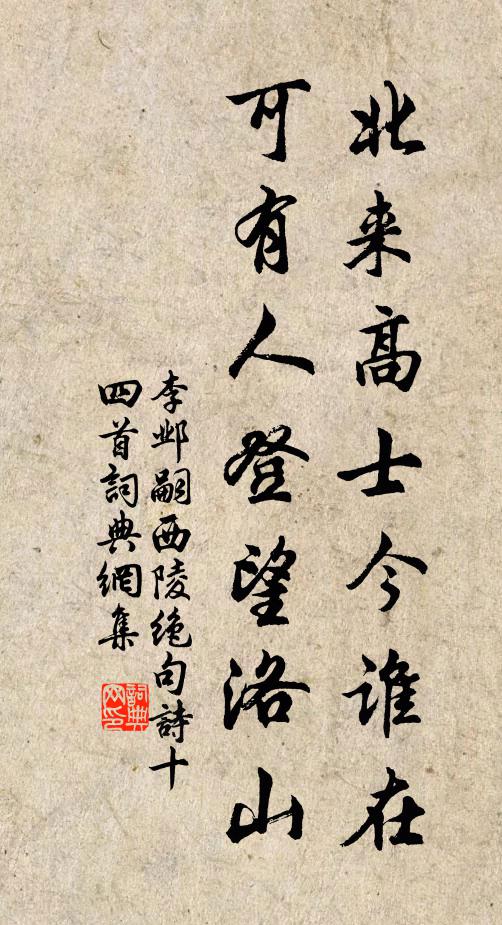 北来高士今谁在
可有人登望洛山
李邺嗣西陵绝句詩十
四首詞典網集
詞典
网印